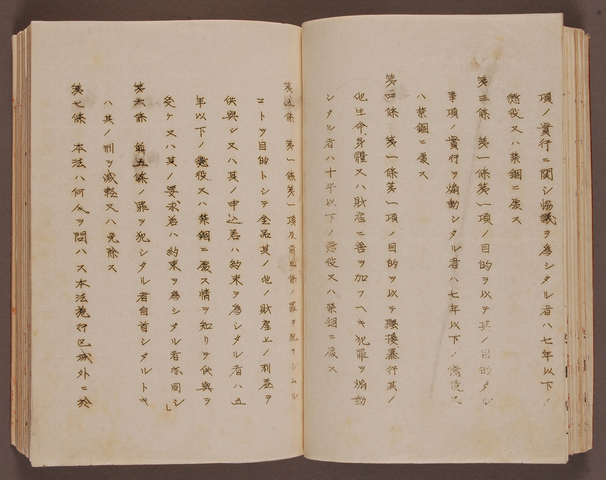 項ノ實行ニ関シ協議ヲ為シタル者ハ七年以下ノ
懲役又ハ禁錮ニ處ス
第三條 第一條第一項ノ目的ヲ以テ其ノ目的タル
事項ノ實行ヲ煽動シタル者ハ七年以下ノ懲役又
ハ禁錮ニ處ス
第四條 第一條第一項ノ目的ヲ以テ騒擾暴行其ノ
他生命身體又ハ財産ニ害ヲ加フヘキ犯罪ヲ煽動
シタル者ハ十年以下ノ懲役又ハ禁錮ニ處ス
第五條 第一條第一項及前三條ノ罪ヲ犯サシムル
コトヲ目的トシテ金品其ノ他ノ財産上ノ利益ヲ
供與シ又ハ其ノ申込若ハ約束ヲ為シタル者ハ五
年以下ノ懲役又ハ禁錮ニ處ス情ヲ知リテ供與ヲ
受ケ又ハ其ノ要求若ハ約束ヲ為シタル者亦同シ
第六條 前五條ノ罪ヲ犯シタル者自首シタルトキ
ハ其ノ刑ヲ減輕又ハ免除ス
第七條 本法ハ何人ヲ問ハス本法施行區域外ニ於